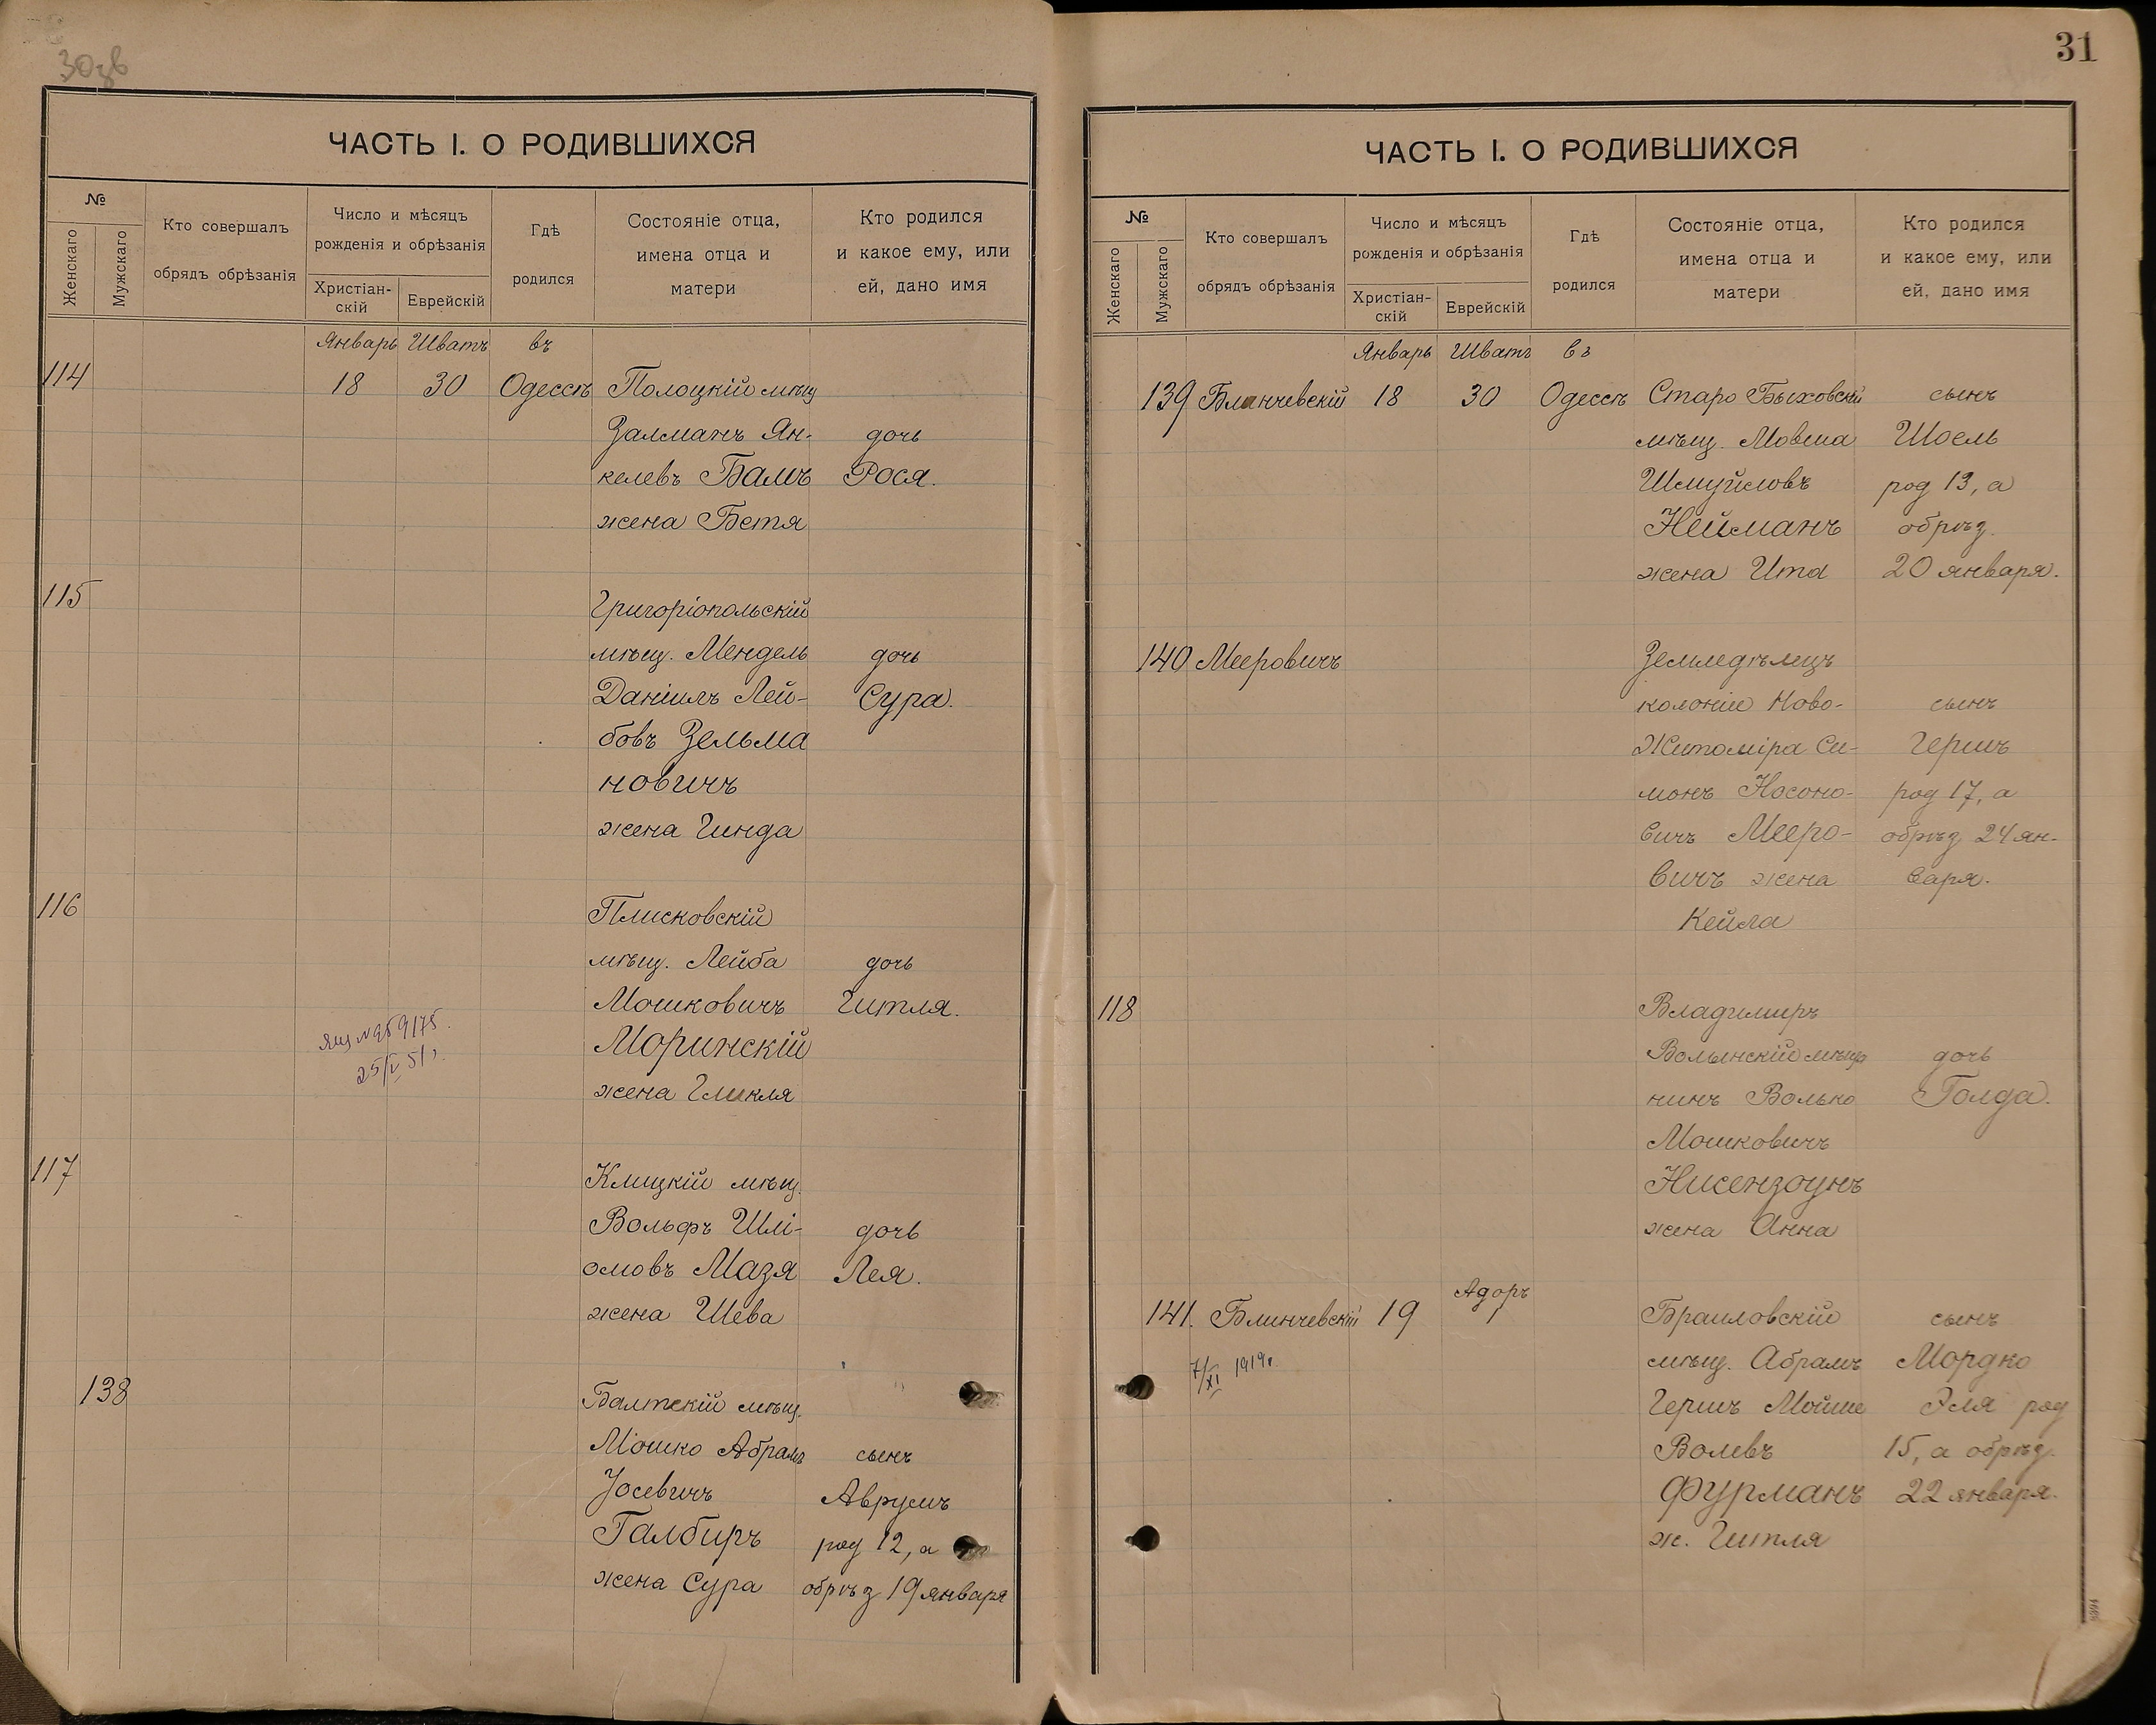 30зв
ЧАСТЬ I. О РОДИВШИХСЯ
№
Женскаго
Мужскаго
Кто совершалъ
обрядъ обрѣзанія
Число и мѣсяцъ
рожденія и обрѣзанія
Христіан-
скій
Еврейскій
Гдѣ
родился
Состояніе отца,
имена отца и
матери
Кто родился
и какое ему, или
ей, дано имя
Январь Шватъ въ
114 18 30 Одессѣ Полоцкій мѣщ
Залманъ Ян- дочь
келевъ Бамъ Рося.
жена Бетя
115 Григоріопольскій
мѣщ. Мендель дочь
Даніилъ Лей- Сура.
бовъ Зельма
новичъ
жена Гинда
116 Плисковскій
мѣщ. Лейба дочь
Мошковичъ Гитля.
Моринскій
жена Гликля
25/V 51г.
117 Клицкій мѣщ.
Вольфъ Шлі- дочь
омовъ Мазя Лея.
жена Шева
138 Балтскій мѣщ.
Мошко Абрамъ сынъ
Іосевичъ Аврумъ
Галбиръ род 12, а
жена Сура обрѣз 19 января
31
ЧАСТЬ I. О РОДИВШИХСЯ
№
Женскаго
Мужскаго
Кто совершалъ
обрядъ обрѣзанія
Число и мѣсяцъ
рожденія и обрѣзанія
Христіан-
скій
Еврейскій
Гдѣ
родился
Состояніе отца,
имена отца и
матери
Кто родился
и какое ему, или
ей, дано имя
Январь Шватъ въ
139 Блинчевскій 18 30 Одессѣ Старо Быховскій сынъ
мѣщ. Мовша Шоель
Шмуйловъ род 13, а
Нейманъ обрѣз.
жена Ита 20 января.
140 Мееровичъ Земледѣлецъ
колоніи Ново- сынъ
Житоміра Си- Гершъ
монъ Носоно- род 17, а
вичъ Мееро- обрѣз 24 ян-
вичъ жена варя.
Кейла
118 Владимиръ
Волынскій мѣща дочь
нинъ Волько Голда.
Мошковичъ
Нисензоунъ
жена Анна
Адоръ
141. Блинчевскій 19 Браиловскій сынъ
7/XI 1919г. мѣщ. Абрамъ Мордко
Гершъ Мойше Эля род
Волевъ 15, а обрѣз.
Фурманъ 22 января.
ж. Гитля